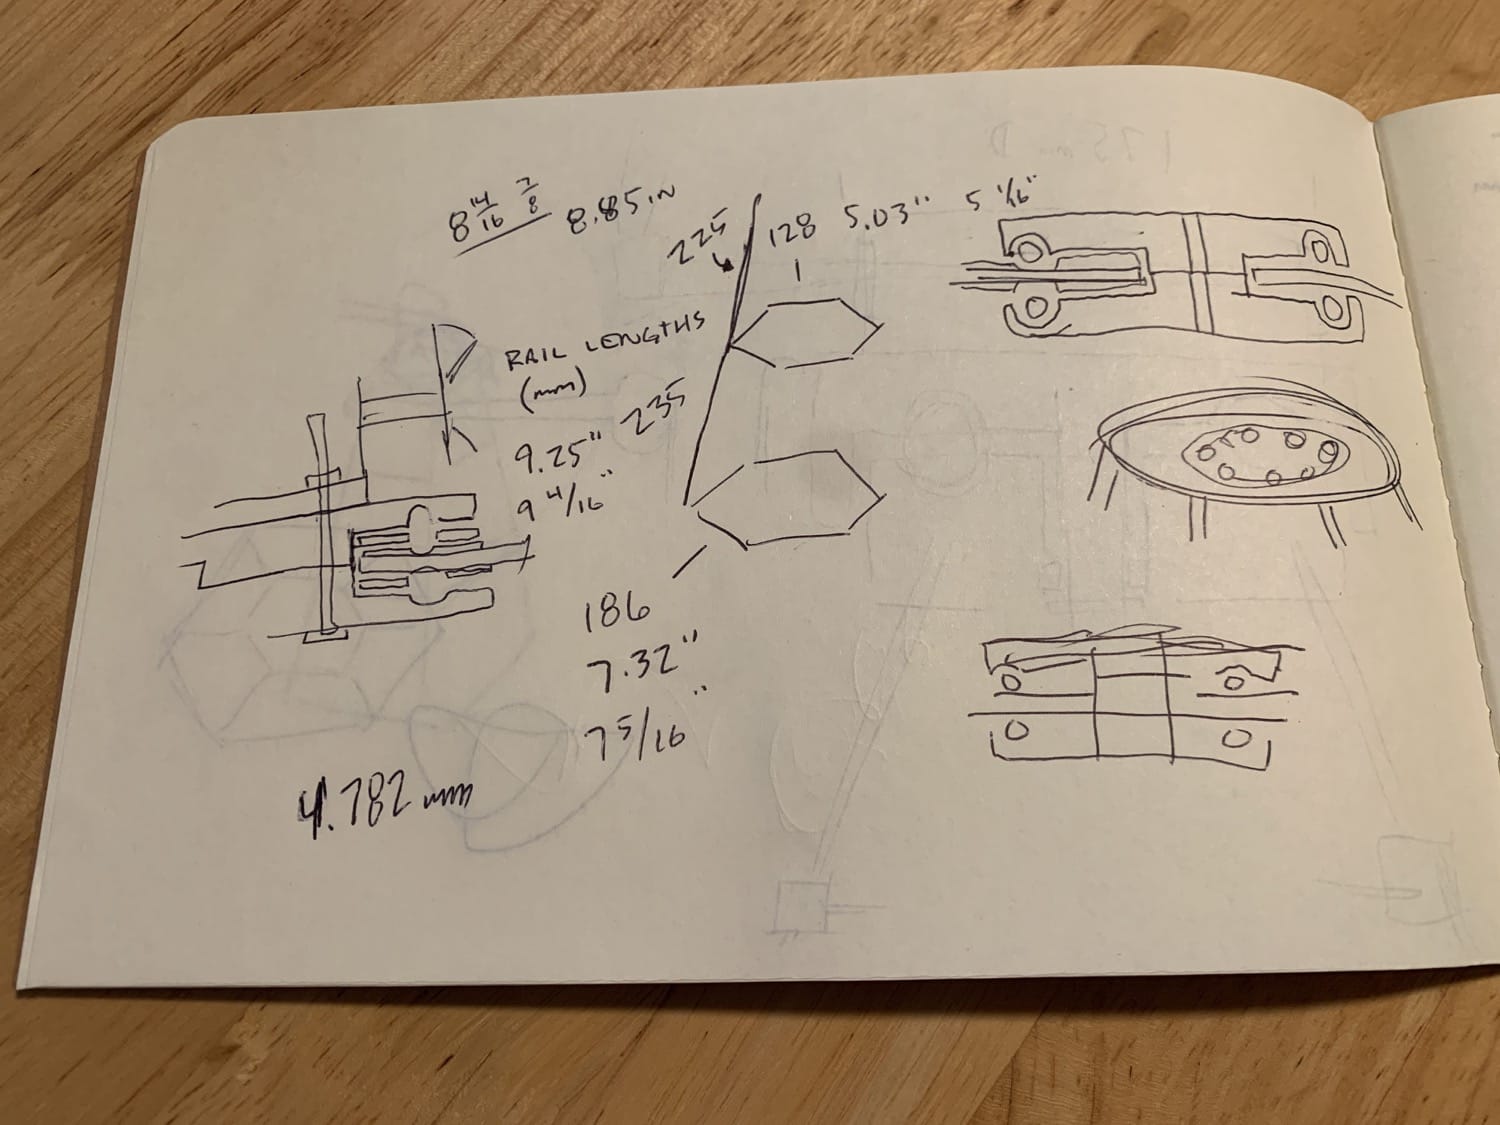 8 14/16 7/8 8.85 IN
225
128 5.03" 5 1/16"
RAIL LENGTHS
(mm)
9.25" 235
9 4/16"
186
7.32"
7 5/16"
4.782 mm